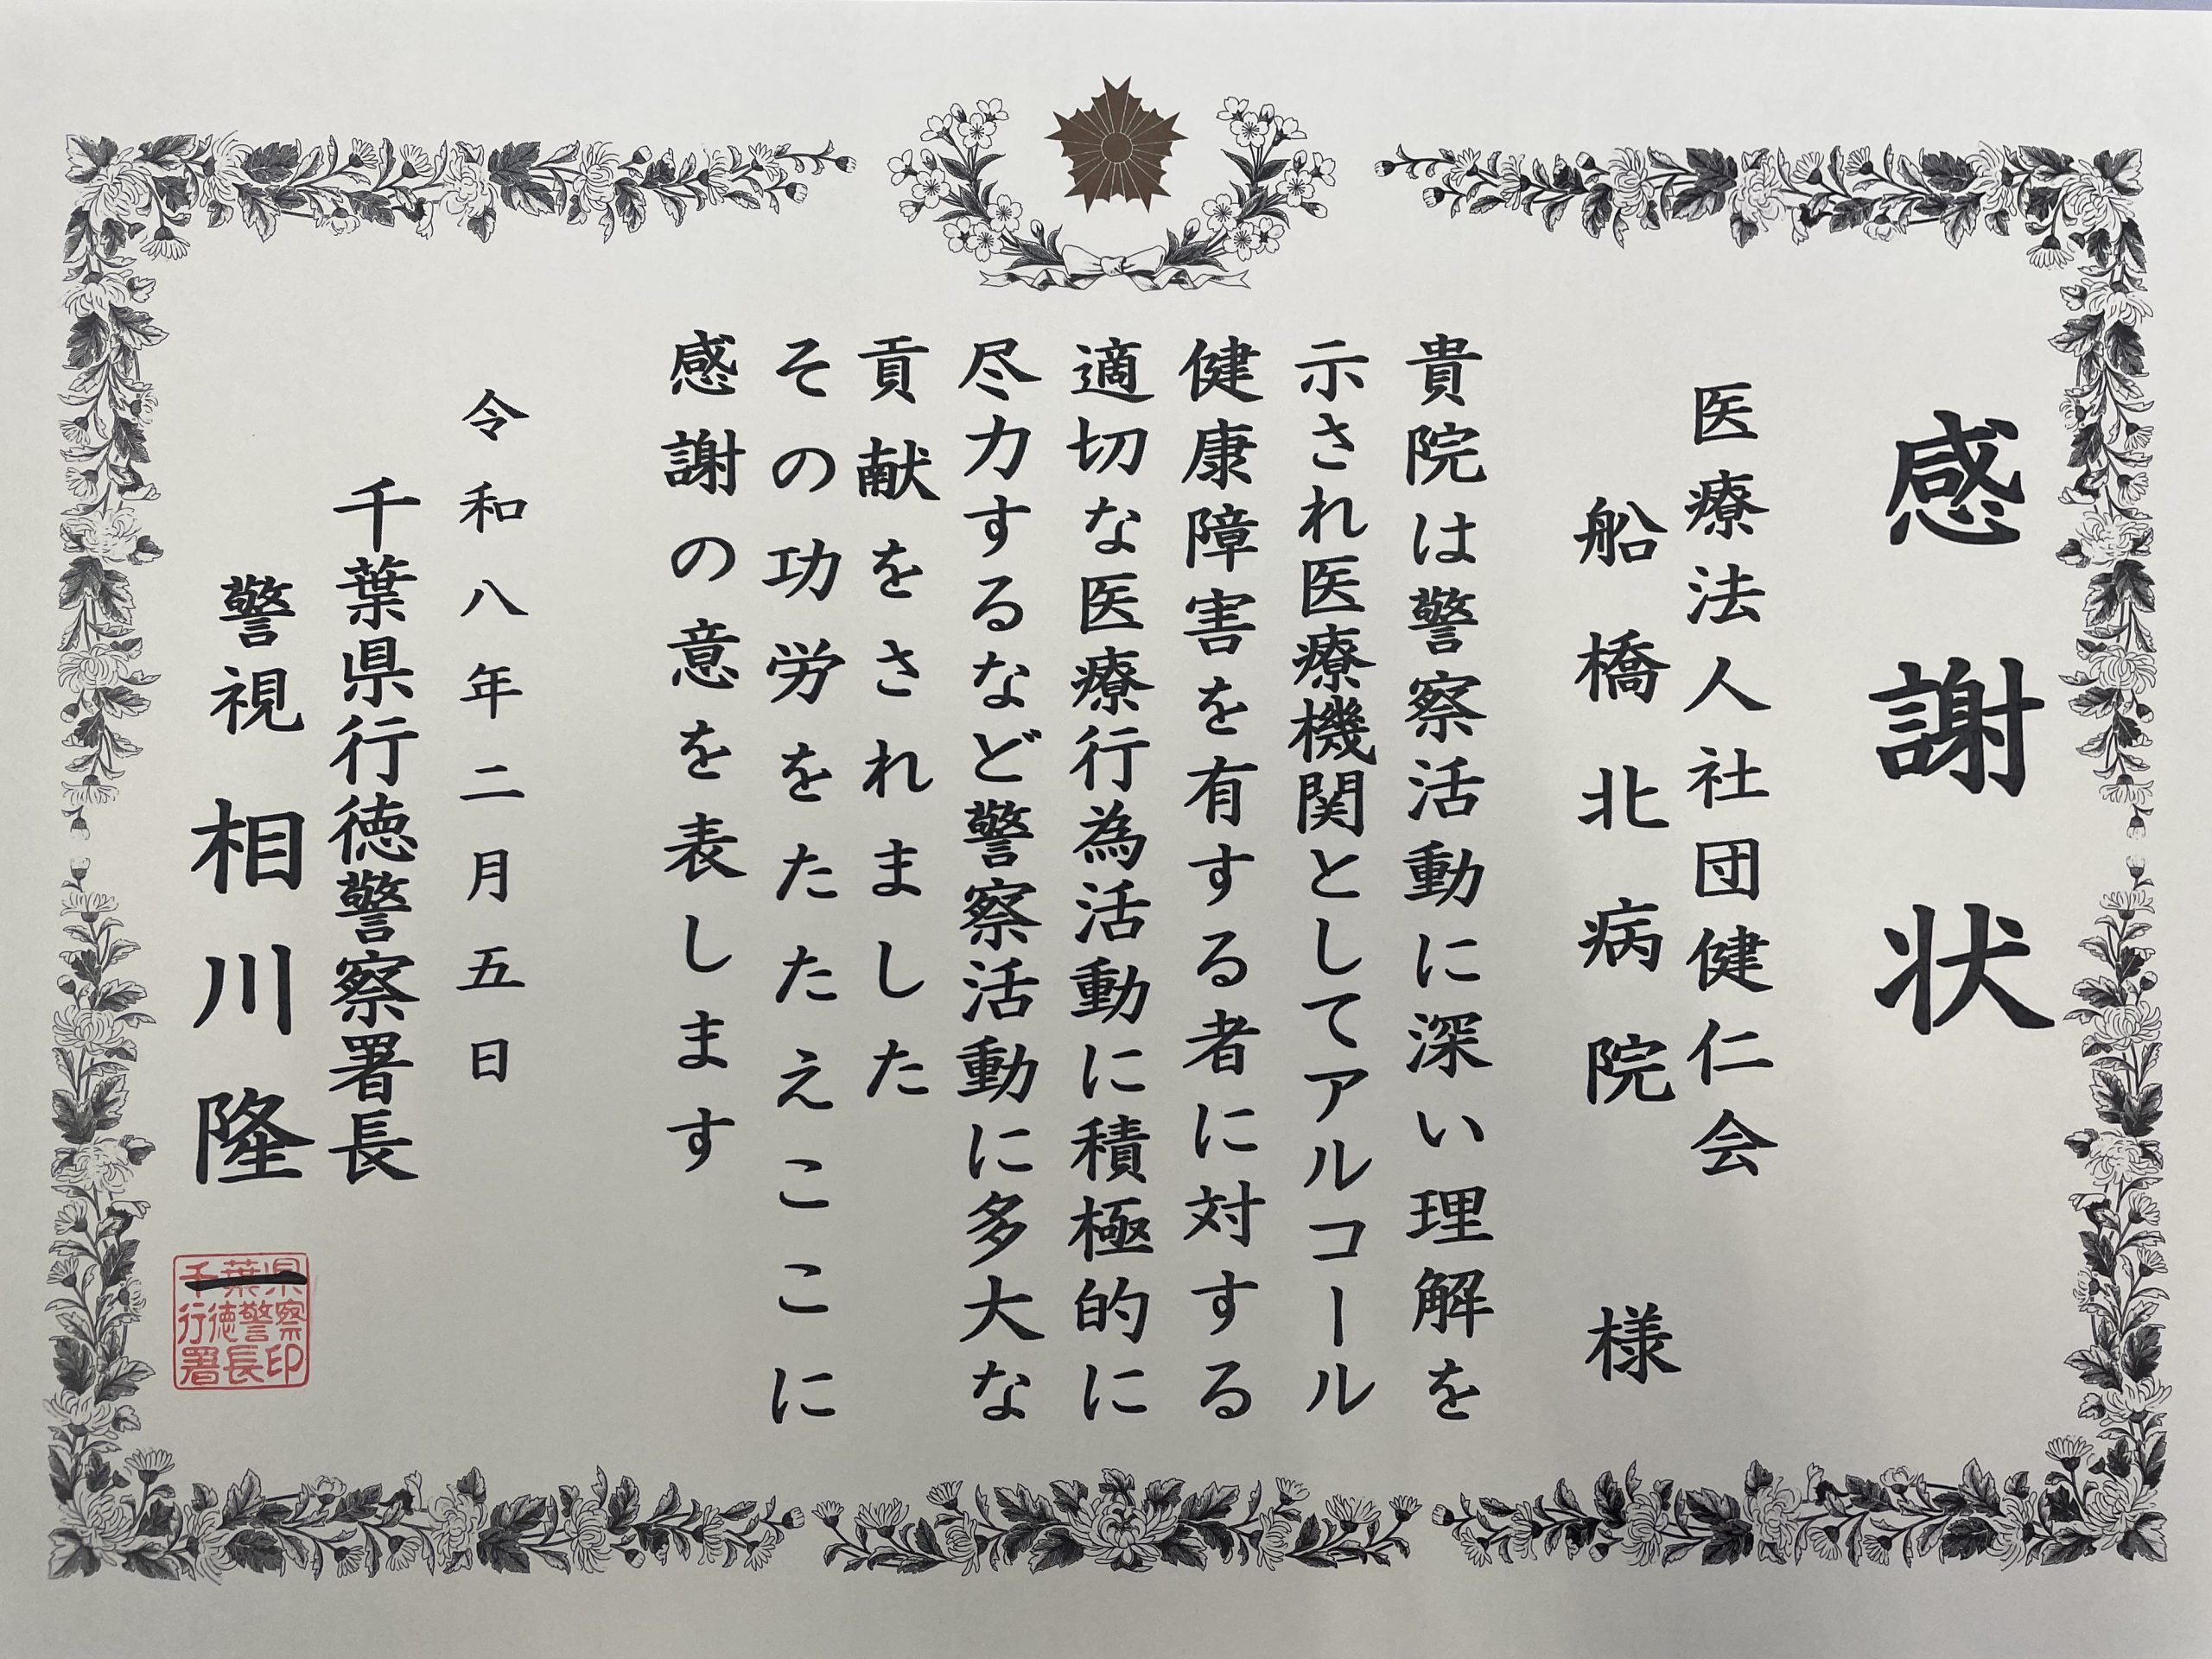 感謝状
医療法人社団健仁会
船橋北病院 様
貴院は警察活動に深い理解を
示され医療機関としてアルコール
健康障害を有する者に対する
適切な医療行為活動に積極的に
尽力するなど警察活動に多大な
貢献をされました
その功労をたたえここに
感謝の意を表します
令和八年二月五日
千葉県行徳警察署長
警視 相川隆
千葉県
行徳警察
署長印